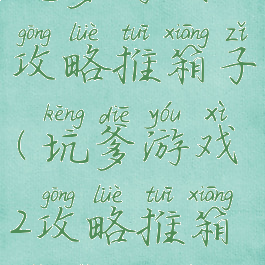 gōng lüè tuī xiāng zǐ
攻略推箱子
kēng diē yóu xì
(坑爹游戏
gōng lüè tuī xiāng
2攻略推箱